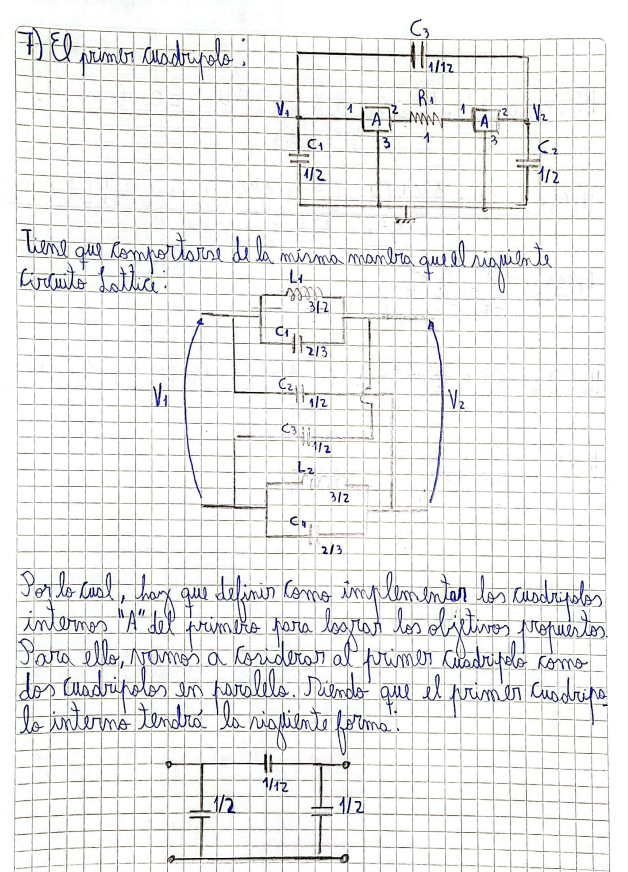 7) El primer cuadripolo:
C3
1/12
V1 1 A 2 R1 1 A 2 V2
3 1 3
C1 C2
1/2 1/2
Tiene que comportarse de la misma manera que el siguiente
circuito Lattice:
L1
3/2
C1
2/3
C2
1/2
V1 V2
C3
1/2
L2
3/2
C4
2/3
Por lo cual, hay que definir como implementar los cuadripolos
internos "A" del primero para lograr los objetivos propuestos.
Para ello, vamos a cosiderar al primer cuadripolo como
dos cuadripolos en paralelo. Siendo que el primer cuadripo-
lo interno tendrá la siguiente forma:
1/12
1/2 1/2